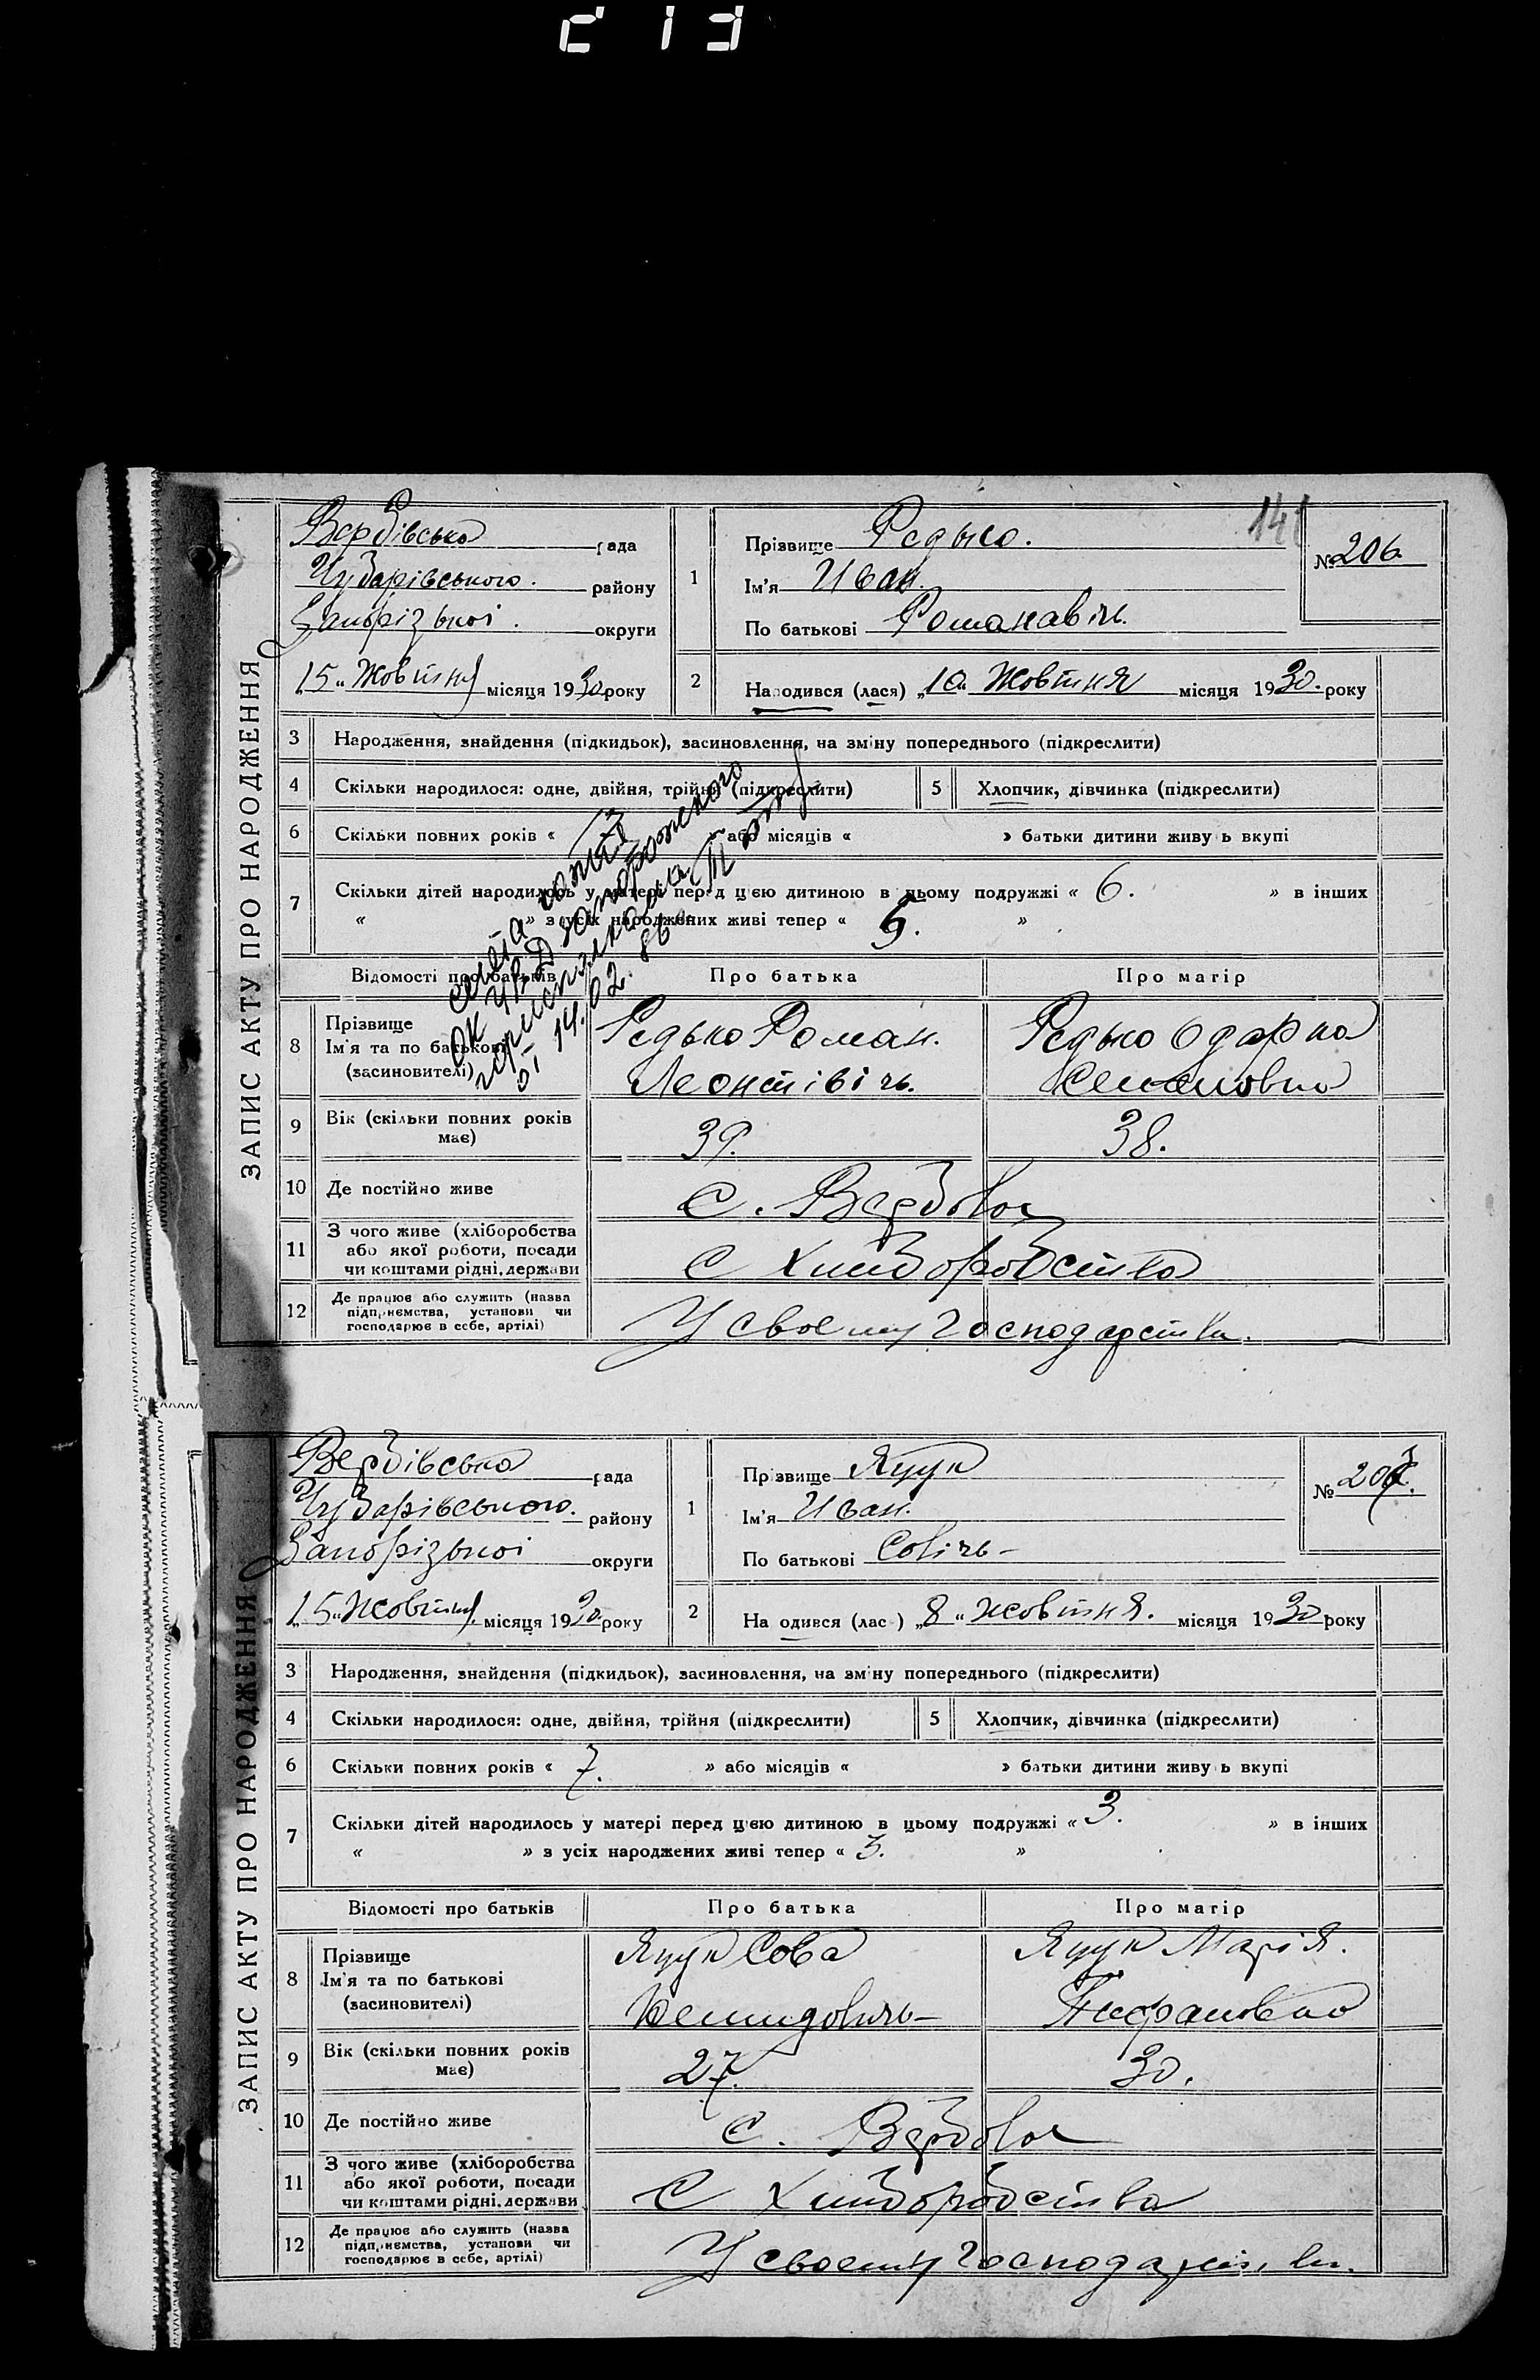 213
ЗАПИС АКТУ ПРО НАРОДЖЕННЯ
Вербівська рада
Чубарівського. району
Запорізької. округи
„15„ Жовтня місяця 1930 року
1
Прізвище Редько.
Ім'я Иван.
По батькові Романавіч.
№ 206
2
Народився (лася) „10„ Жовтня місяця 1930. року
3 Народження, знайдення (підкидьок), засиновлення, на зміну попереднього (підкреслити)
4 Скільки народилося: одне, двійня, трійня (підкреслити)
5 Хлопчик, дівчинка (підкреслити)
6 Скільки повних років « » або місяців « » батьки дитини живуть вкупі
7 Скільки дітей народилось у матері перед цією дитиною в цьому подружжі « 6. » в інших
« » з усіх народжених живі тепер « 5. »
от 14.02.86
Відомості про батьків Про батька Про матір
8 Прізвище
Ім'я та по батькові
(засиновителі)
Редько Роман.
Леонтівічь.
Редько Одарка
Семеновна
9 Вік (скільки повних років має) 39. 38.
10 Де постійно живе С. Вербова
11 З чого живе (хліборобства
або якої роботи, посади
чи коштами рідні, держави
С Хлиборобства
12 Де працює або служить (назва
підприємства, установи чи
господарює в себе, артілі)
У своему господарстви.
ЗАПИС АКТУ ПРО НАРОДЖЕННЯ
Вербівська рада
Чубарівського. району
Запорізької округи
„15„ Жовтня місяця 1930 року
1
Прізвище Яцун
Ім'я Иван.
По батькові Совічь-
№ 207.
2
Народився (лася) „8„ жовтня. місяця 1930 року
3 Народження, знайдення (підкидьок), засиновлення, на зміну попереднього (підкреслити)
4 Скільки народилося: одне, двійня, трійня (підкреслити)
5 Хлопчик, дівчинка (підкреслити)
6 Скільки повних років « 7. » або місяців « » батьки дитини живуть вкупі
7 Скільки дітей народилось у матері перед цією дитиною в цьому подружжі « 3. » в інших
« » з усіх народжених живі тепер « 3. »
Відомості про батьків Про батька Про матір
8 Прізвище
Ім'я та по батькові
(засиновителі)
Яцун Сова
Яцун Марія.
9 Вік (скільки повних років має) 27. 30.
10 Де постійно живе С. Вербова
11 З чого живе (хліборобства
або якої роботи, посади
чи коштами рідні, держави
С Хлиборобства
12 Де працює або служить (назва
підприємства, установи чи
господарює в себе, артілі)
У своему господарстви.